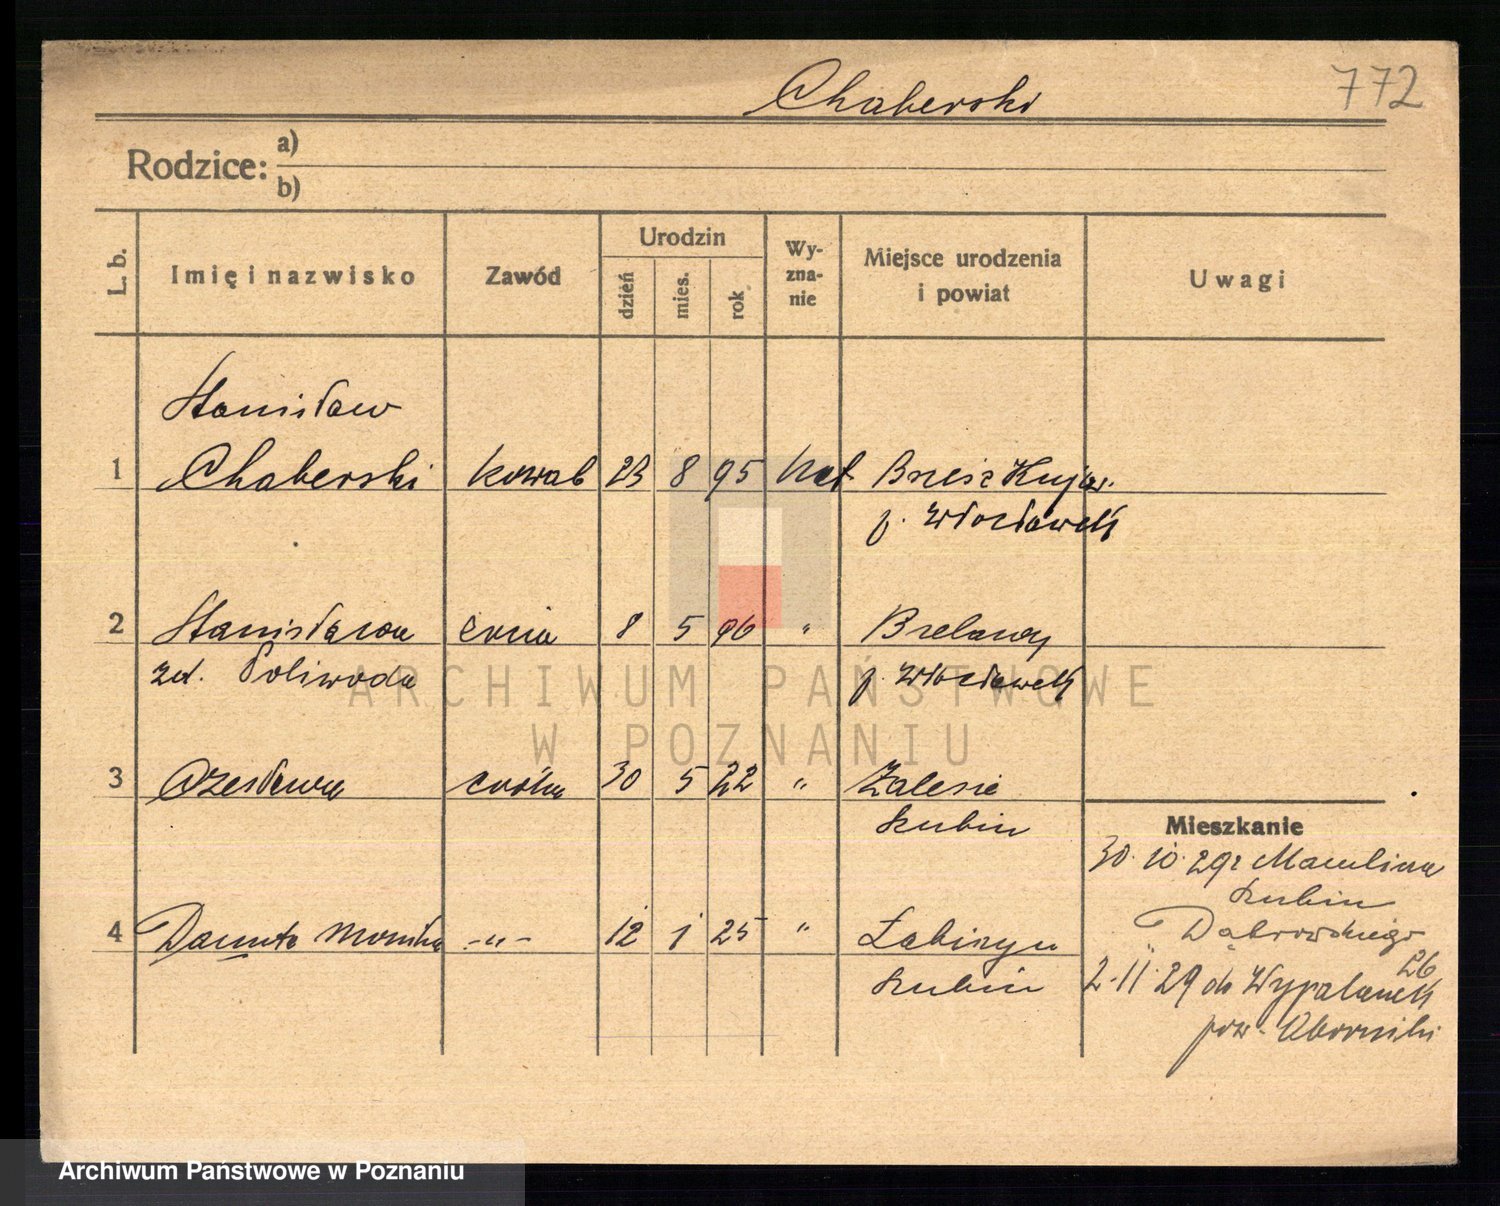 Chaberski 772
Rodzice: a)
b)
L. b. Imię i nazwisko Zawód Urodzin dzień mies. rok Wy-zna-nie Miejsce urodzenia i powiat Uwagi
Stanisław
1 Chaberski kowal 23 8 95 kat Brześć Kujaw.
p. Włocławek
2 Stanisława żona 8 5 96 " 
zd. Poliwoda p. Włocławek
3 Czesława córka 30 5 22 " Zalesie
Szubin
Mieszkanie
30.10.29r
Szubin
4 Danuta Monika -"- 12 1 25 " Łabiszyn
Dąbrowskiego
26
Szubin
2.11.29 do Wypalanek
pow. Oborniki
ARCHIWUM PAŃSTWOWE
W POZNANIU
Archiwum Państwowe w Poznaniu